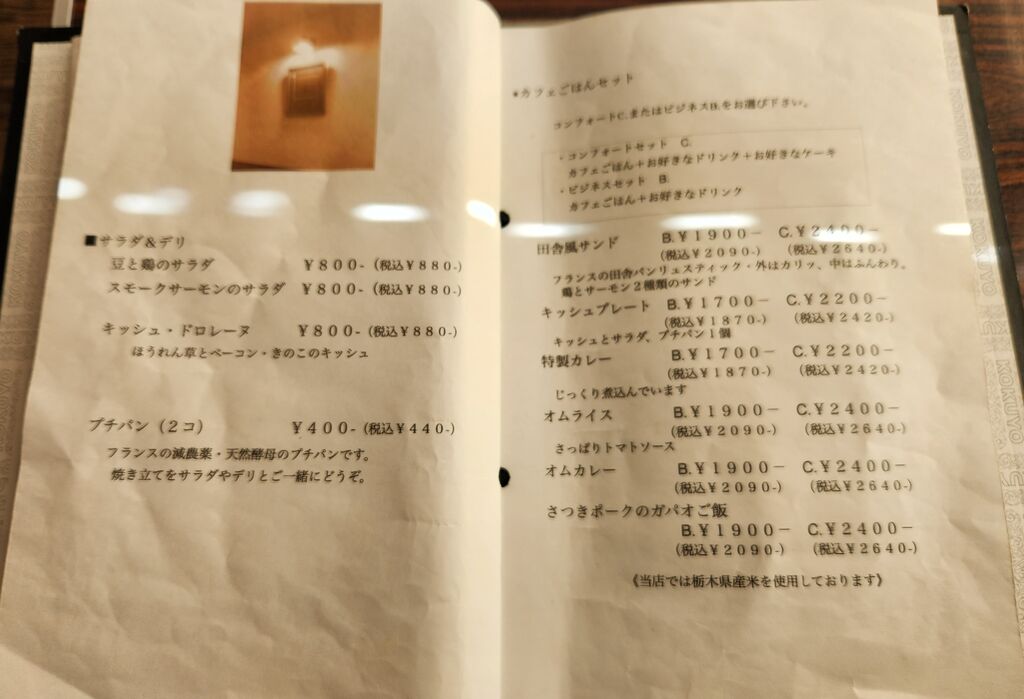 ■サラダ＆デリ
豆と鶏のサラダ ￥８００-（税込￥８８０-）
スモークサーモンのサラダ ￥８００-（税込￥８８０-）
キッシュ・ドロレーヌ ￥８００-（税込￥８８０-）
ほうれん草とベーコン・きのこのキッシュ
プチパン（２コ） ￥４００-（税込￥４４０-）
フランスの減農薬・天然酵母のプチパンです。
焼き立てをサラダやデリとご一緒にどうぞ。
*カフェごはんセット
コンフォートC.またはビジネスB.をお選び下さい。
・コンフォートセット C.
カフェごはん＋お好きなドリンク＋お好きなケーキ
・ビジネスセット B.
カフェごはん＋お好きなドリンク
田舎風サンド B.￥１９００－ C.￥２４００－
（税込￥２０９０-） （税込￥２６４０-）
フランスの田舎パンリュスティック・外はカリッ、中はふんわり。
鶏とサーモン２種類のサンド
キッシュプレート B.￥１７００－ C.￥２２００－
（税込￥１８７０-） （税込￥２４２０-）
キッシュとサラダ、プチパン１個
特製カレー B.￥１７００－ C.￥２２００－
（税込￥１８７０-） （税込￥２４２０-）
じっくり煮込んでいます
オムライス B.￥１９００－ C.￥２４００－
（税込￥２０９０-） （税込￥２６４０-）
さっぱりトマトソース
オムカレー B.￥１９００－ C.￥２４００－
（税込￥２０９０-） （税込￥２６４０-）
さつきポークのガパオご飯
B.￥１９００－ C.￥２４００－
（税込￥２０９０-） （税込￥２６４０-）
《当店では栃木県産米を使用しております》